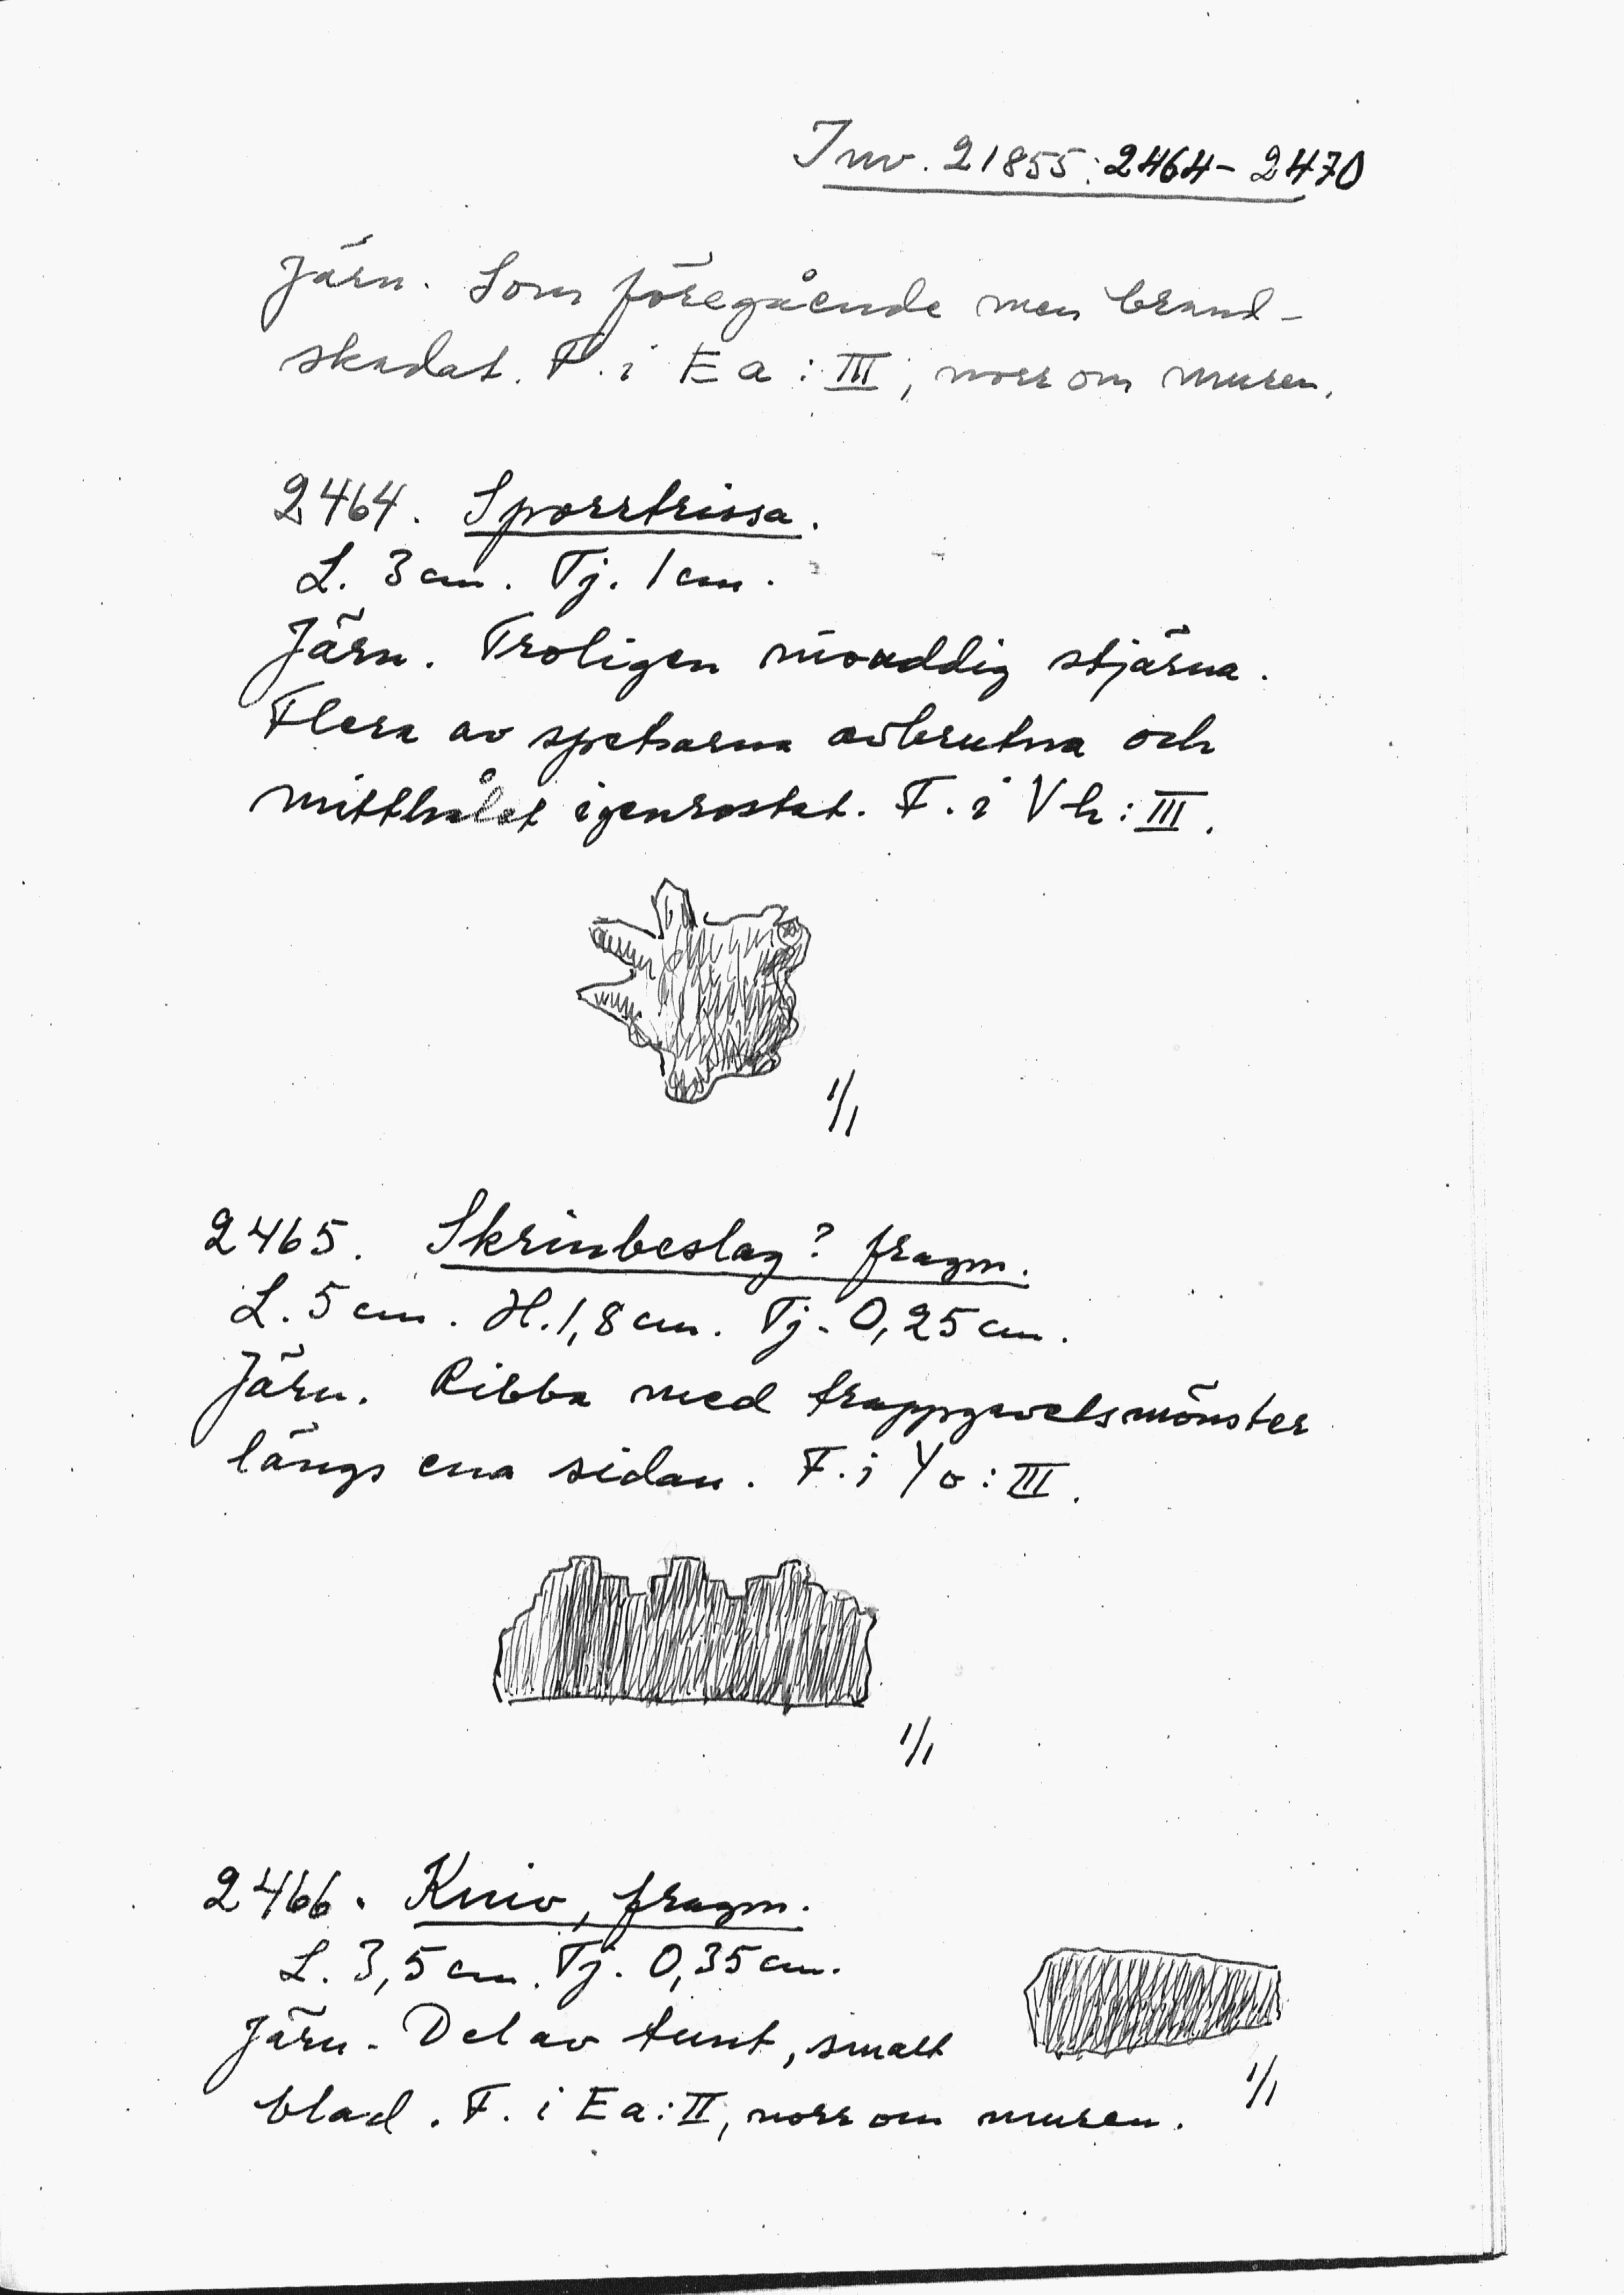 Inv. 21855:2464-2470
Järn. Som föregående men brand-
skadat. F. i Ea:III, norr om muren.
2464. Sporrtrissa.
L. 3 cm. Tj. 1 cm.
Järn. Troligen niouddig stjärna.
Flera av spetsarna avbrutna och
mitthålet igenrostat. F. i Vh:III.
1/1
2465. Skrinbeslag? fragm.
L. 5 cm. H. 1,8 cm. Tj. 0,25 cm.
Järn. Ribba med trappgavelsmönster
längs ena sidan. F. i Yo:III.
1/1
2466. Kniv, fragm.
L. 3,5 cm. Tj. 0,35 cm.
Järn. Del av tunt, smalt
blad. F. i Ea:II, norr om muren.
1/1